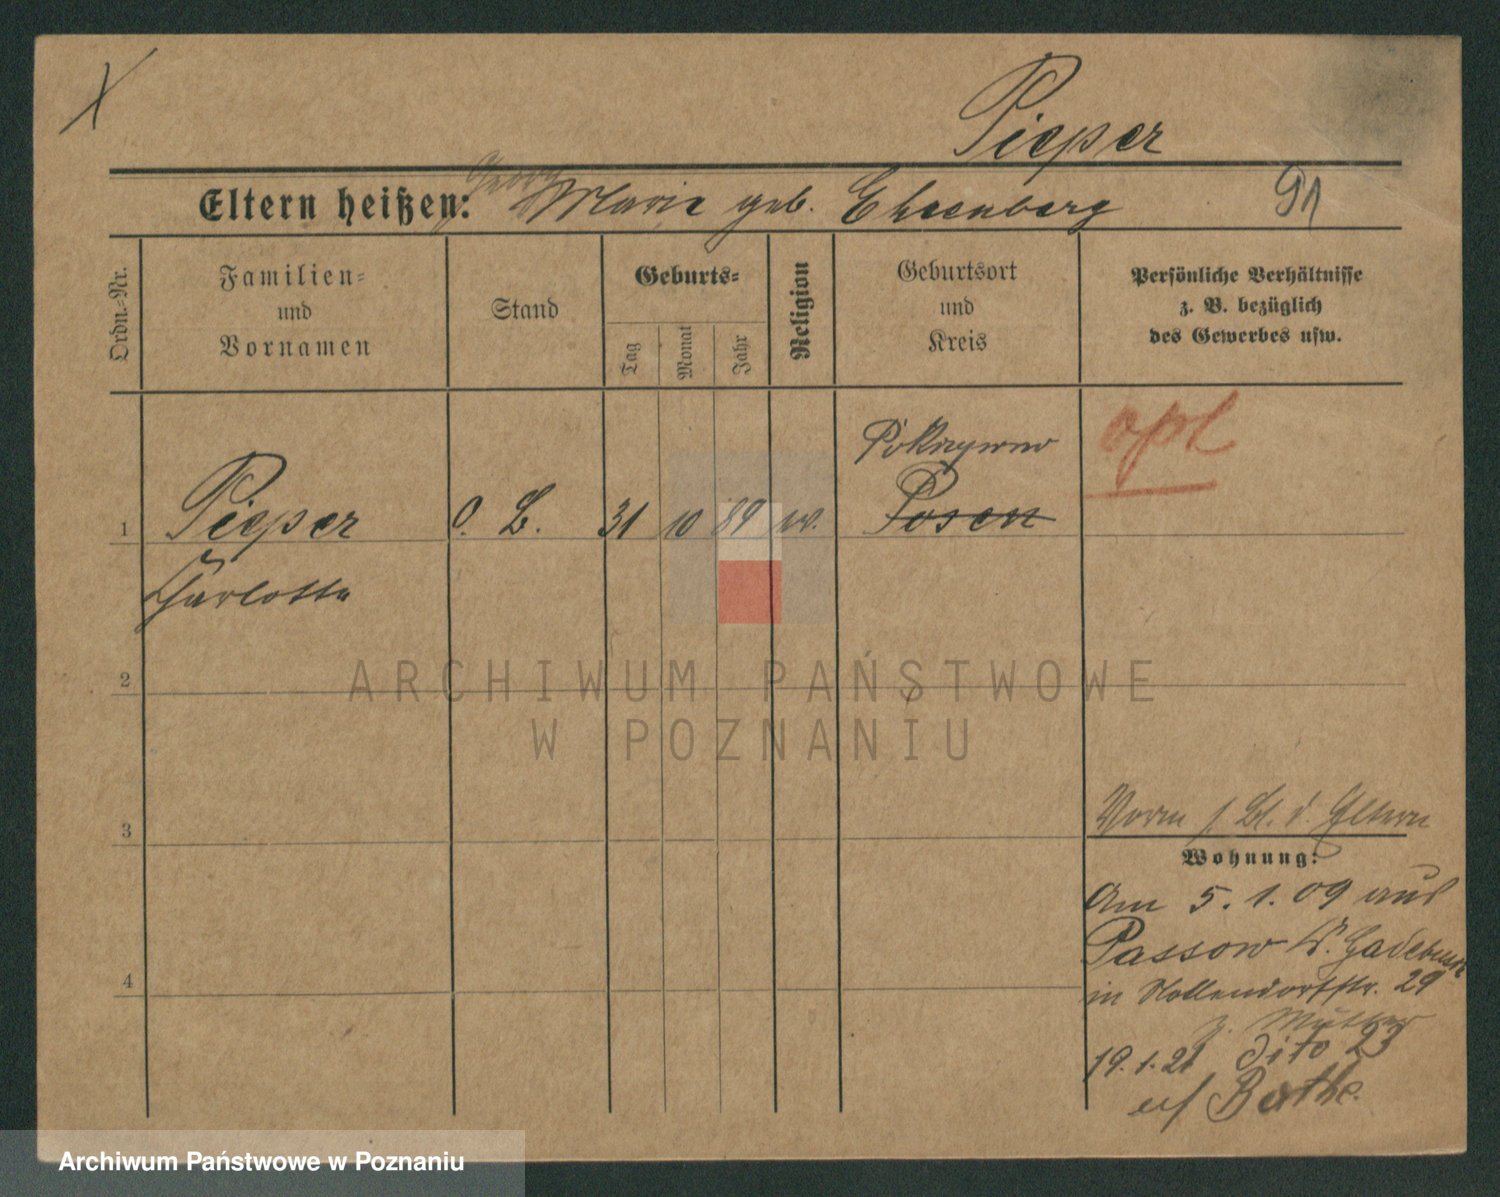 Pieper
Eltern heißen: Georg Marie geb. Ehrenberg
Ordn.-Nr.
Familien-
und
Vornamen
Stand
Geburts-
Tag
Monat
Jahr
Religion
Geburtsort
und
Kreis
Persönliche Verhältnisse
z. B. bezüglich
des Gewerbes usw.
opl
Pokrzywno
1 Pieper o. B. 31 10 89 w. Posen
Charlotte
2
ARCHIWUM PAŃSTWOWE
W POZNANIU
3
Vorm s. Bl. d. Eltern
Wohnung:
Am 5.1.09 aus
Passow K. Gadebusch
in Nollendorfstr. 29
z. Mutter
4
19.1.21 dito 23
Archiwum Państwowe w Poznaniu